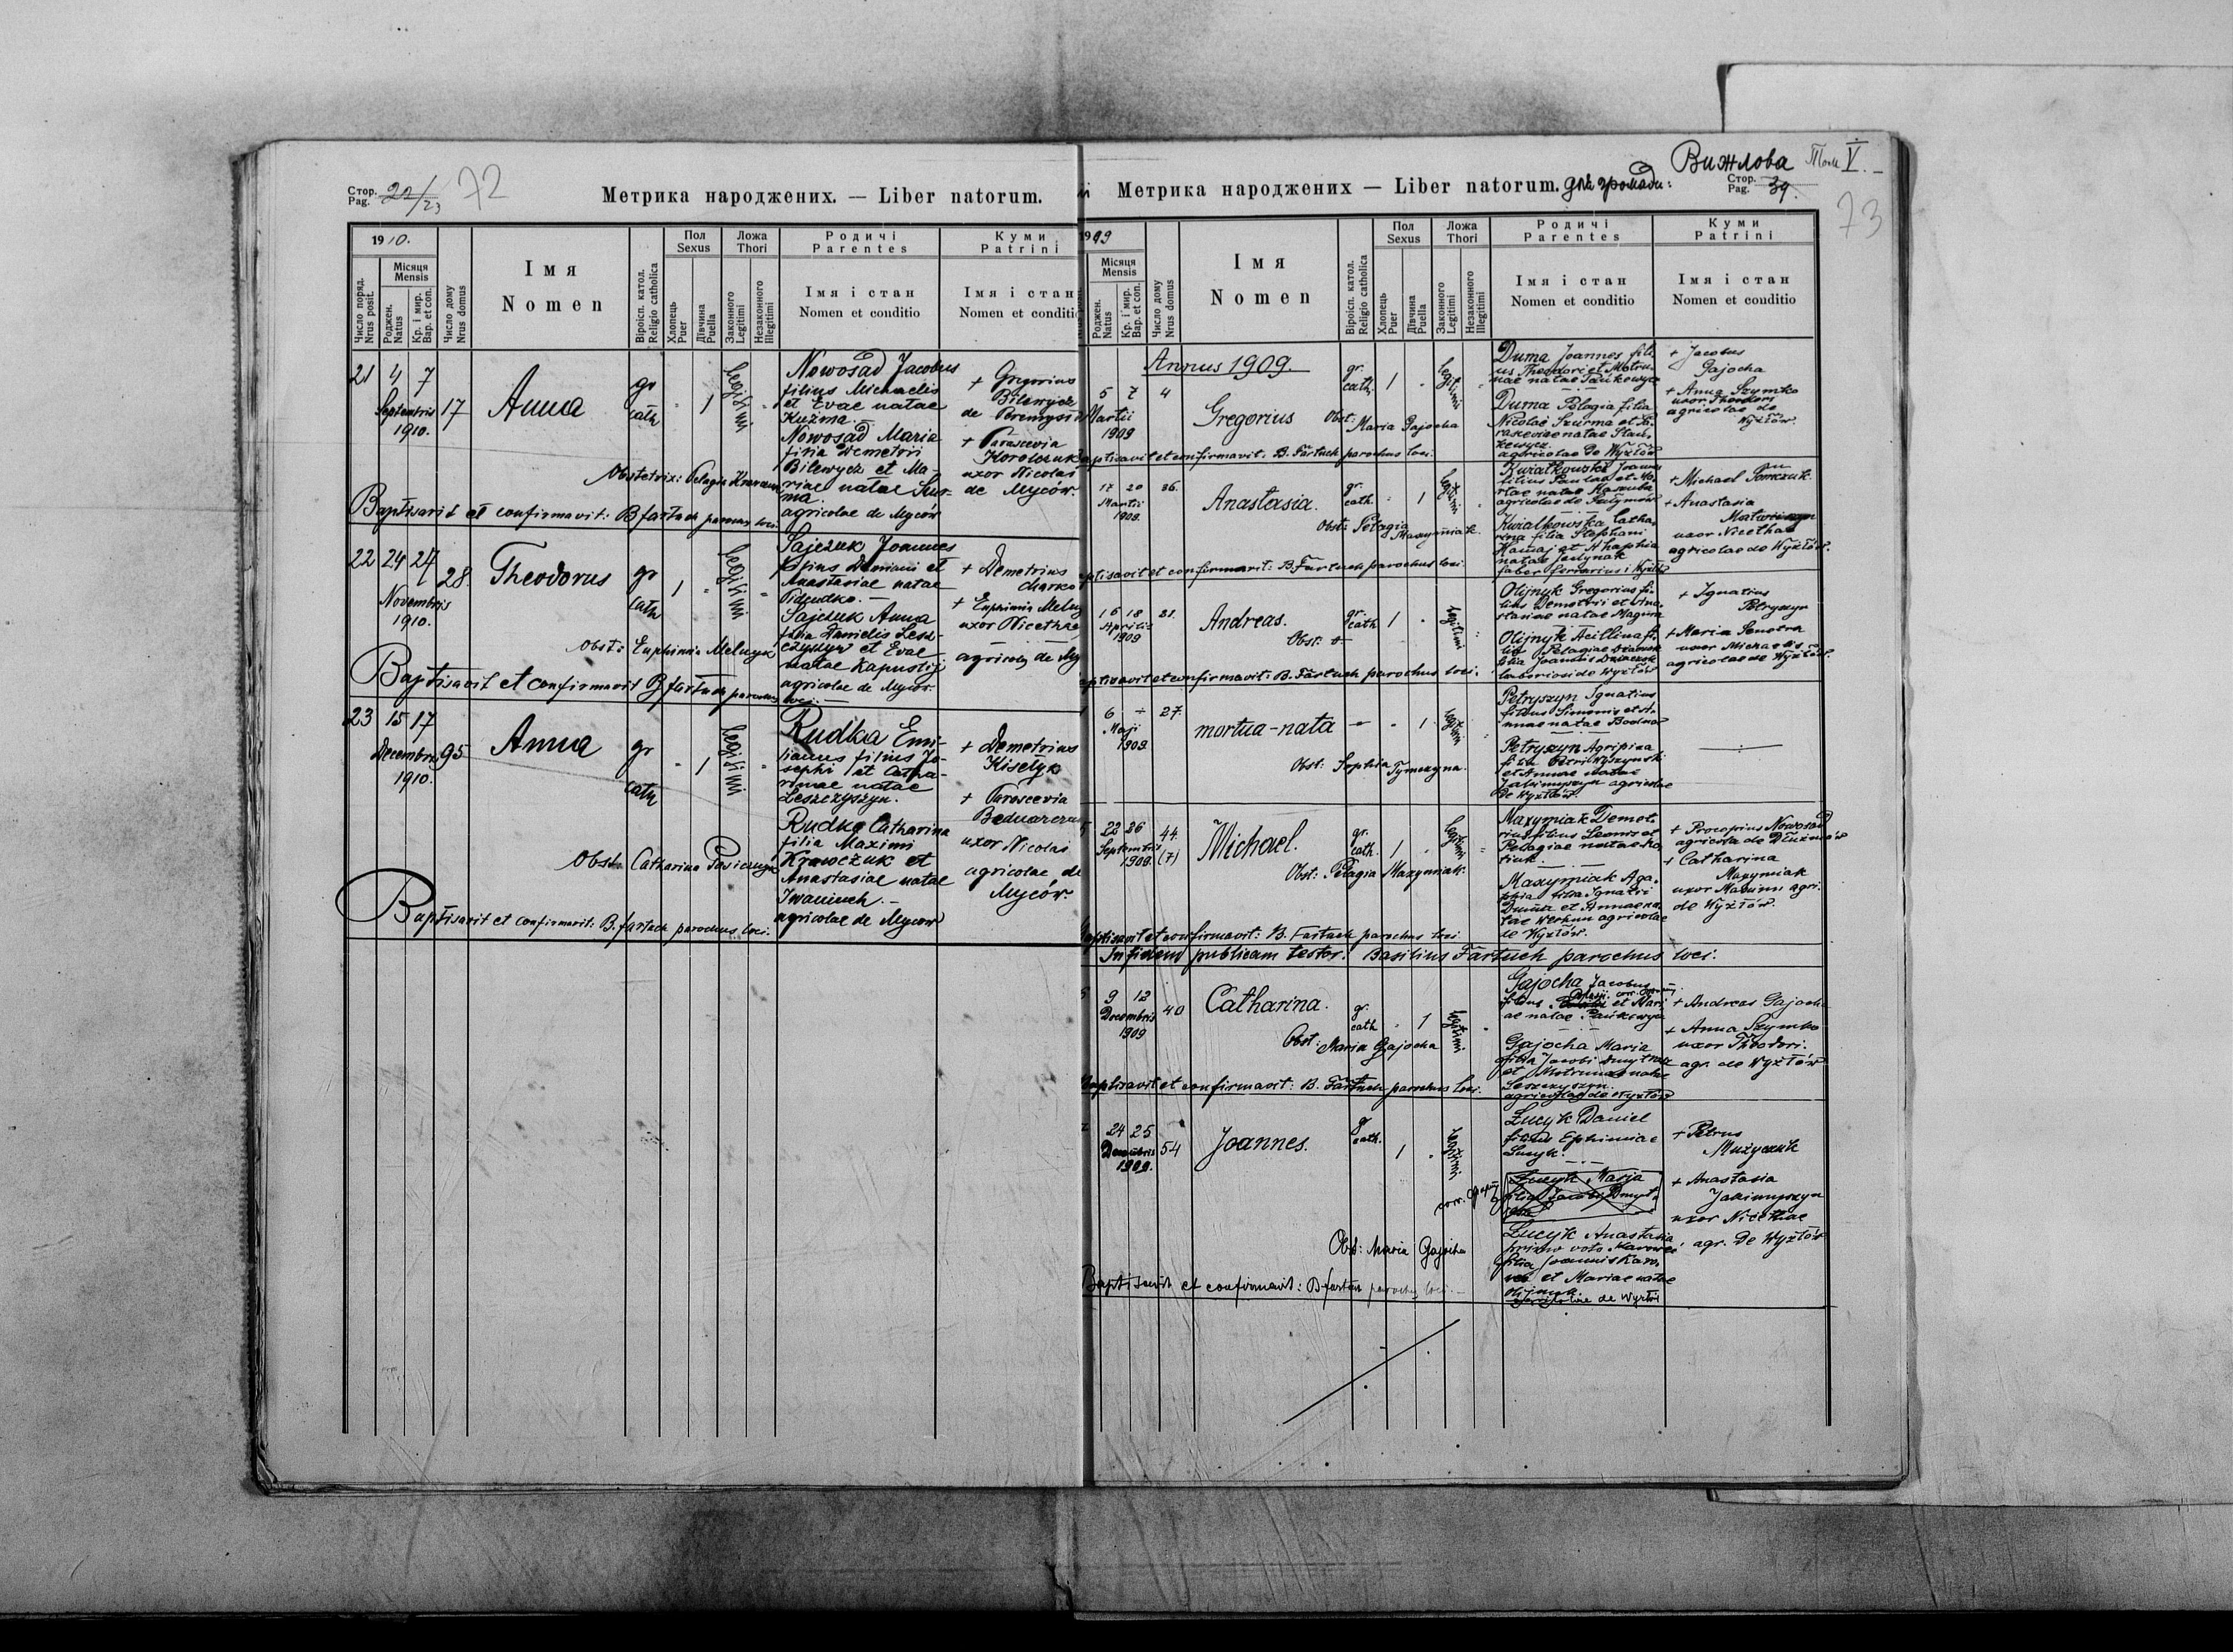 Стор.
Pag. 22/23
72
Метрика народжених. — Liber natorum.
1910.
Число поряд.
Nrus posit.
Місяця
Mensis
Роджен.
Natus
Кр. і мир.
Bap. et con.
Число дому
Nrus domus
Імя
Nomen
Віроісп. катол.
Religio catholica
Пол
Sexus
Хлопець
Puer
Дівчина
Puella
Ложа
Thori
Законного
Legitimi
Незаконного
Illegitimi
Родичі
Parentes
Імя і стан
Nomen et conditio
Куми
Patrini
Імя і стан
Nomen et conditio
21 4 7
Septembris
1910.
17
Anna
gr
cath
1
legitimi
Nowosad Jacobus
filius Michaelis
et Evae natae
Kuźma. —
Nowosad Maria
filia Demetrii
Bilewycz et Ma-
riae natae
agricolae de Myców
+ Gregorius
Bilewycz
de
+ Parascevia
Korolczuk
uxor Nicolai
de Myców.
Obstetrix: Pelagia
Baptisavit et confirmavit: B fartuch parochus loci.
22 24 27
Novembris
1910.
28.
Theodorus
gr
cath
1
legitimi
Sajczuk Joannes
filius Damiani et
Anastasiae natae
Sajczuk Anna
filia Danielis Lesz-
czyszyn et Evae
natae Kapustij
agricolae de Myców.
+ Demetrius
Charko
+ Euphimia Melnyk
uxor Nicethae
agricolae de My
Obst: Euphimia Melnyk
Baptisavit et confirmavit B fartuch parochus loci. —
23 15 17
Decembris
1910.
95
Anna
gr
cath
1
legitimi
Rudka Emi-
lianus filius Jo-
sephi et Catha-
rinae natae
Leszczyszyn.
Rudka Catharina
filia Maximi
Krawczuk et
Anastasiae natae
Iwaniuch. —
agricolae de Myców
+ Demetrius
Kiselyk
+ Parascevia
Bednarczuk
uxor Nicolai
agricolae de
Myców.
Obst. Catharina
Baptisavit et confirmavit: B. fartuch parochus loci.
Метрика народжених — Liber natorum. для громади:
Вижлова Том V. —
Стор.
Pag. 39.
73
1909
Місяця
Mensis
Роджен.
Natus
Кр. і мир.
Bap. et con.
Число дому
Nrus domus
Імя
Nomen
Віроісп. катол.
Religio catholica
Пол
Sexus
Хлопець
Puer
Дівчина
Puella
Ложа
Thori
Законного
Legitimi
Незаконного
Illegitimi
Родичі
Parentes
Імя і стан
Nomen et conditio
Куми
Patrini
Імя і стан
Nomen et conditio
Annus 1909.
5 7 4
Martii
1909
Gregorius
gr.
cath.
1
legitimi
Obst: Maria Gajocha
Duma Joannes fili-
us Theodori et Motru-
nae natae Pańkowycz
Duma Pelagia filia
Nicolai Szurma et Pa-
rasceviae natae
agricolae de Wyżłów
+ Jacobus
Gajocha
+ Anna Szymko
uxor Theodori
agricolae de
Wyżłów.
aptisavit et confirmavit. B. Fartuch parochus loci.
17 20 36.
Martii
1909.
Anastasia.
gr.
cath.
1
legitimi
Obst: Pelagia Maxymiak.
Kwiatkowski Joannes
filius Pauli et Ma-
riae natae Kaszuba
agricolae de
Kwiatkowska Catha-
rina filia Stephani
et Ahaphia
natae
faber ferrarius i Wyżłów
+ Michael
+ Anastasia
uxor Nicethae
agricolae de Wyżłów.
ptisavit et confirmavit: B. Fartuch parochus loci
16 18 21.
Aprilis
1909
Andreas.
gr.
cath
1
legitimi
Obst:
Olijnyk Gregorius fi-
lius Demetrii et Ana-
stasiae natae
Olijnyk Acillina fi-
lia Pelagiae
filia Joannis
laboriosi de Wyżłów
+ Ignatius
Petryszyn
+ Maria
uxor Michaelis
agricolae de Wyżłów.
aptisavit et confirmavit: B. Fartuch parochus loci.
6 ÷ 27.
Maji
1909.
mortua-nata
1
legitimi
Obst. Sophia Tymczyna.
Petryszyn Ignatius
filius Simeonis et A-
nnae natae Bodnar
Petryszyn Agripina
filia Petri Wyszynski
et Annae natae
Jakimyszyn agricolae
de Wyżłów.
22 26 44.
Septembris
1909. (7)
Michael.
gr.
cath.
1
legitimi
Obst: Pelagia Maxymiak.
Maxymiak Demet-
rius filius Leonis et
Pelagiae natae
Maxymiak Aga-
phia filia Ignatii
Duma et Annae na-
tae Werhun agricolae
de Wyżłów.
+ Procopius Nowosad
agricola de Dłużniów
+ Catharina
Maxymiak
uxor Maximi agri.
de Wyżłów.
aptisavit et confirmavit: B. Fartuch parochus loci
In fidem publicam testor. Basilius Fartuch parochus loci.
9 12
Decembris
1909
40
Catharina.
gr.
cath
1
legitimi
Obst: Maria Gajocha
Gajocha Jacobus
filius et Mari
ae natae Pańkowycz
Gajocha Maria
filia Jacobi Dmytruk
et Motrunae natae
Leszczyszyn.
agricolae de Wyżłów
+ Andreas Gajocha
+ Anna Szymko
uxor Theodori.
agr. de Wyżłów
Baptisavit et confirmavit: B. Fartuch parochus loci.
24 25
Decembris
1909.
54
Joannes.
gr
cath.
1
legitimi
Łucyk Daniel
filius Ephimiae
Łucyk.
Łucyk Maria
Łucyk Anastasia
primo voto
filia Joannis
et Mariae natae
Olijnyk
agricolae de Wyżłów
+ Petrus
Mużyczuk
+ Anastasia
Jakimyszyn
uxor Nicethae
agr. de Wyżłów
Obst: Maria Gajocha
Baptisavit et confirmavit: B fartuch parochus loci. —